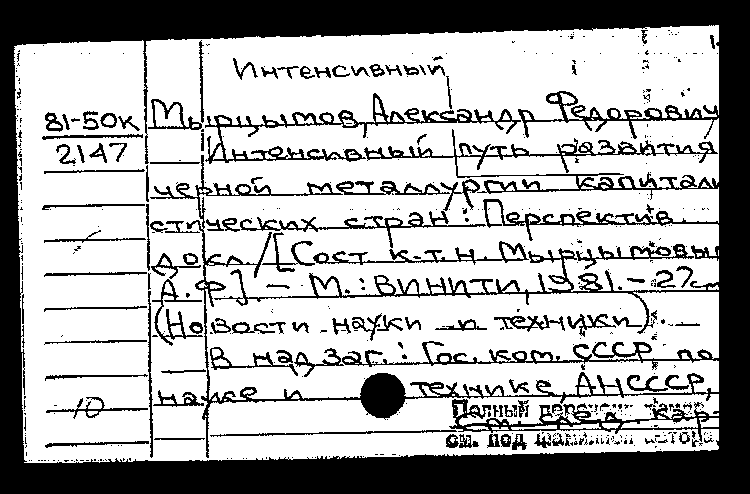 Интенсивный
81-50к Мырцымов, Александр Федорович
2147 Интенсивный путь развития
черной металлургии капитали
стических стран: Перспектив.
докл. /[Сост. к.т.н. Мырцымовым
А.Ф]. - М.: ВИНИТИ, 1981. - 27с
(Новости науки и техники).
В надзаг.: Гос. ком. СССР по
науке и технике, АНСССР,
10
Полный перечень
см. след. кар-
см. под фамилией автора